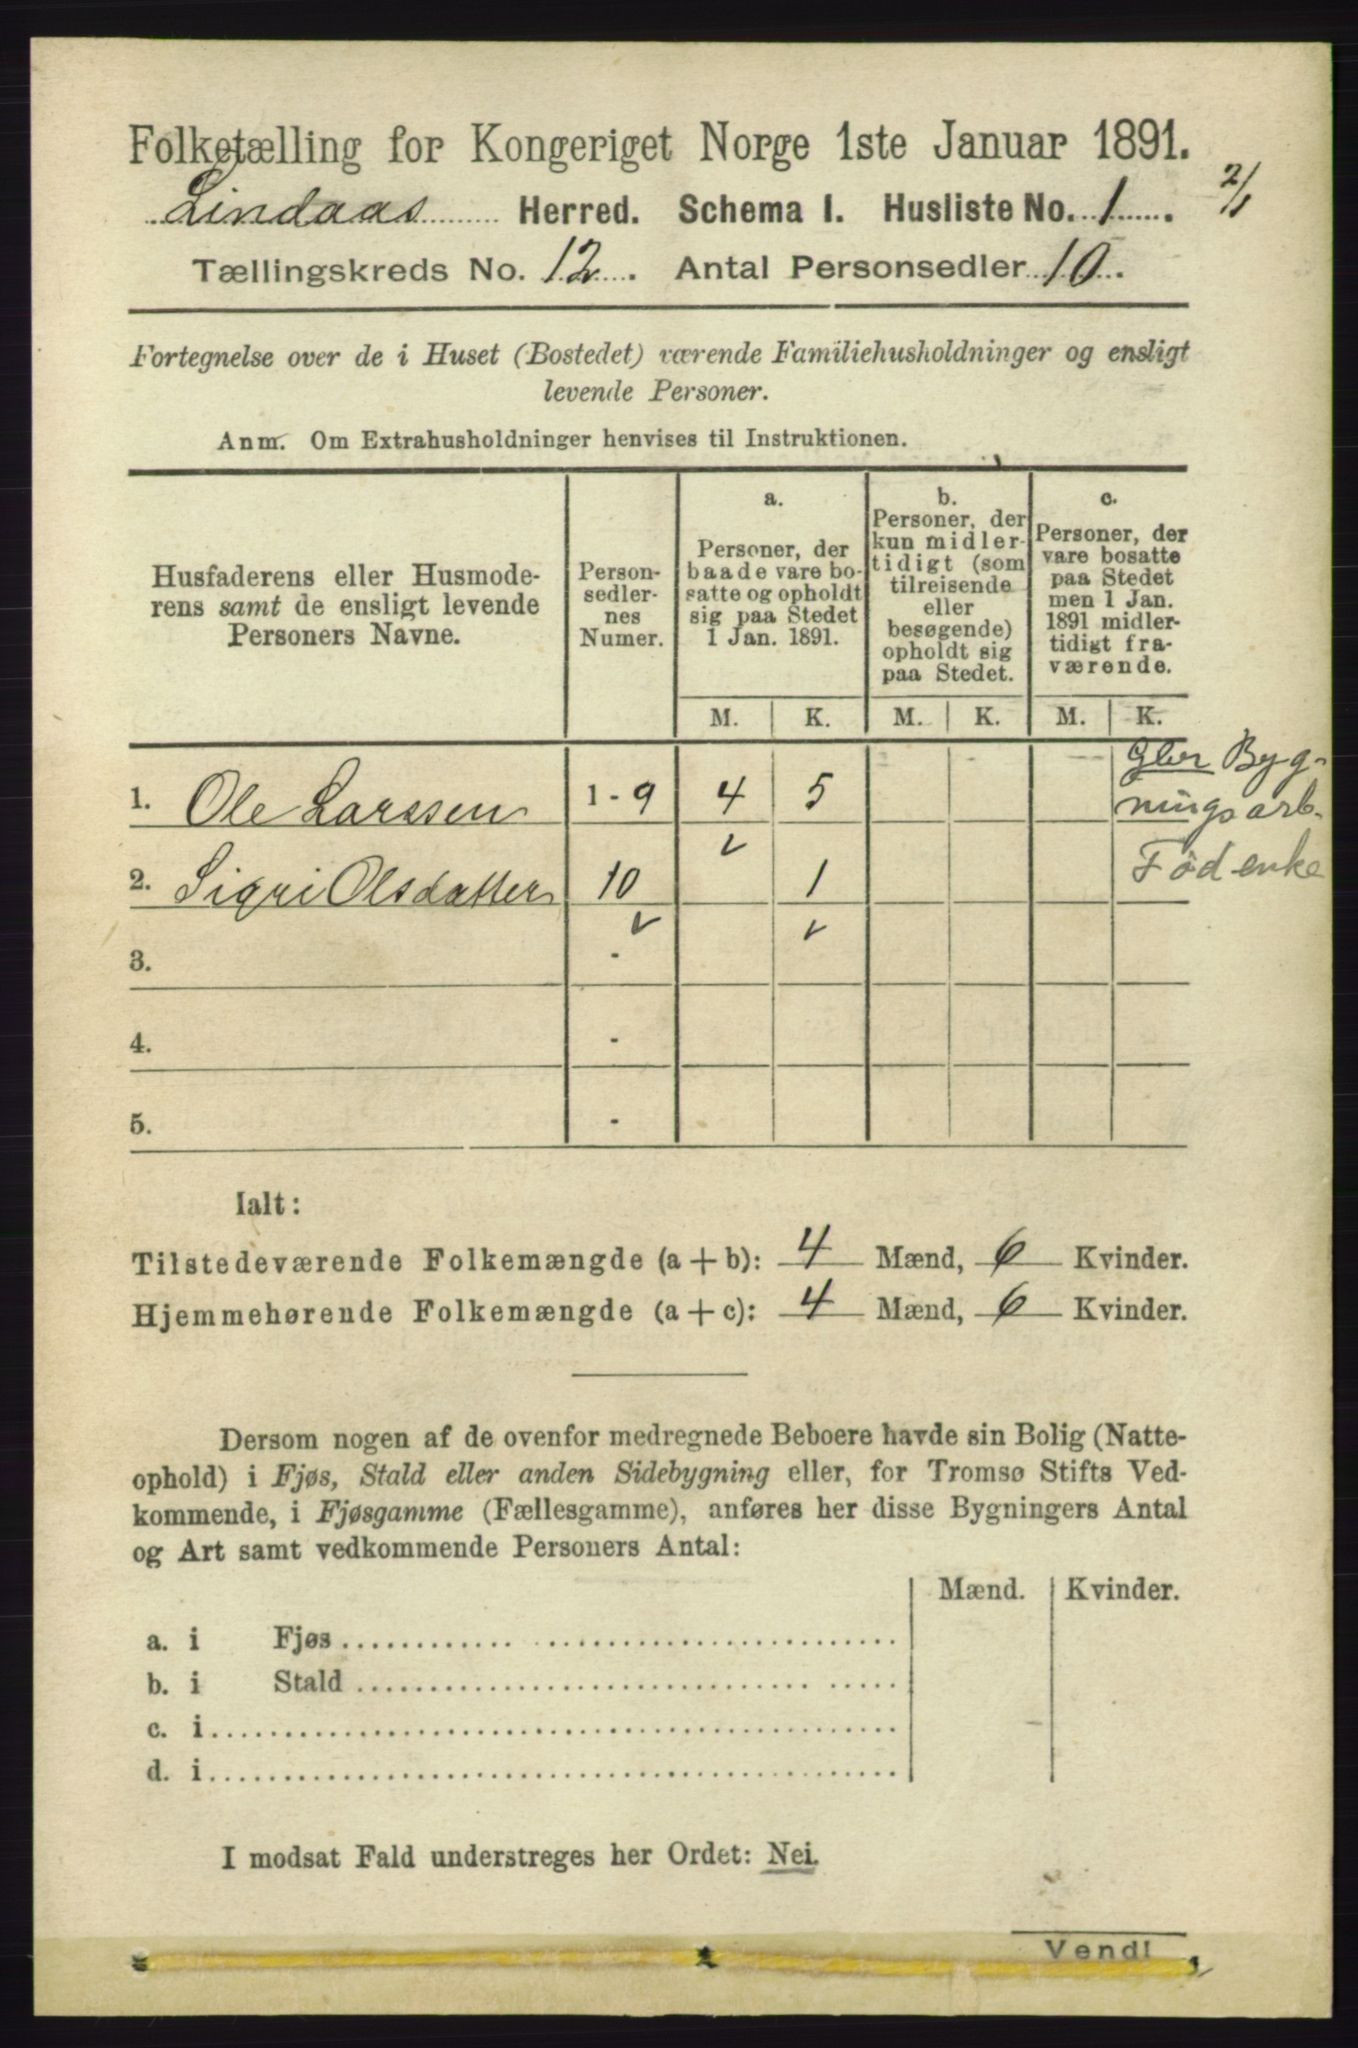 Folketælling for Kongeriget Norge 1ste Januar 1891.
Lindaas Herred. Schema I. Husliste No. 1. 2/1
Tællingskreds No. 12. Antal Personsedler 10.
Fortegnelse over de i Huset (Bostedet) værende Familiehusholdninger og ensligt
levende Personer.
Anm. Om Extrahusholdninger henvises til Instruktionen.
Husfaderens eller Husmode-
rens samt de ensligt levende
Personers Navne.
Person-
sedler-
nes
Numer.
a.
Personer, der
baade vare bo-
satte og opholdt
sig paa Stedet
1 Jan. 1891.
b.
Personer, der
kun midler-
tidigt (som
tilreisende
eller
besøgende)
opholdt sig
paa Stedet.
c.
Personer, der
vare bosatte
paa Stedet
men 1 Jan.
1891 midler-
tidigt fra-
værende.
M. K. M. K. M. K.
1. Ole Larssen 1-9 4 5
Gbr Byg-
ningsarb.
2. Sigri Olsdatter 10 1
Fødenke
3. -
4. -
5. -
Ialt:
Tilstedeværende Folkemængde (a + b): 4 Mænd, 6 Kvinder.
Hjemmehørende Folkemængde (a + c): 4 Mænd, 6 Kvinder.
Dersom nogen af de ovenfor medregnede Beboere havde sin Bolig (Natte-
ophold) i Fjøs, Stald eller anden Sidebygning eller, for Tromsø Stifts Ved-
kommende, i Fjøsgamme (Fællesgamme), anføres her disse Bygningers Antal
og Art samt vedkommende Personers Antal:
Mænd. Kvinder.
a. i Fjøs
b. i Stald
c. i
d. i
I modsat Fald understreges her Ordet: Nei.
Vend!